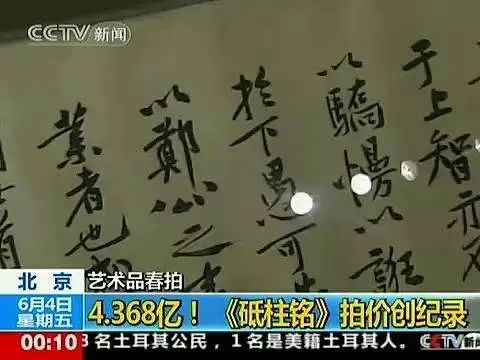 CCTV 新闻
于上智亦
以驕慢以誑
於下愚 可
以鄭公之
業者也
北京
6月4日
星期五
艺术品春拍
4.368亿！《砥柱铭》拍价创纪录
00:10
8名土耳其公民，1名是美籍土耳其人。
CCTV